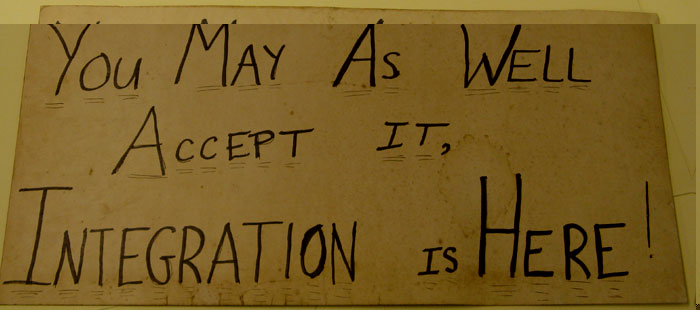 You May As Well
Accept it,
Integration is Here!